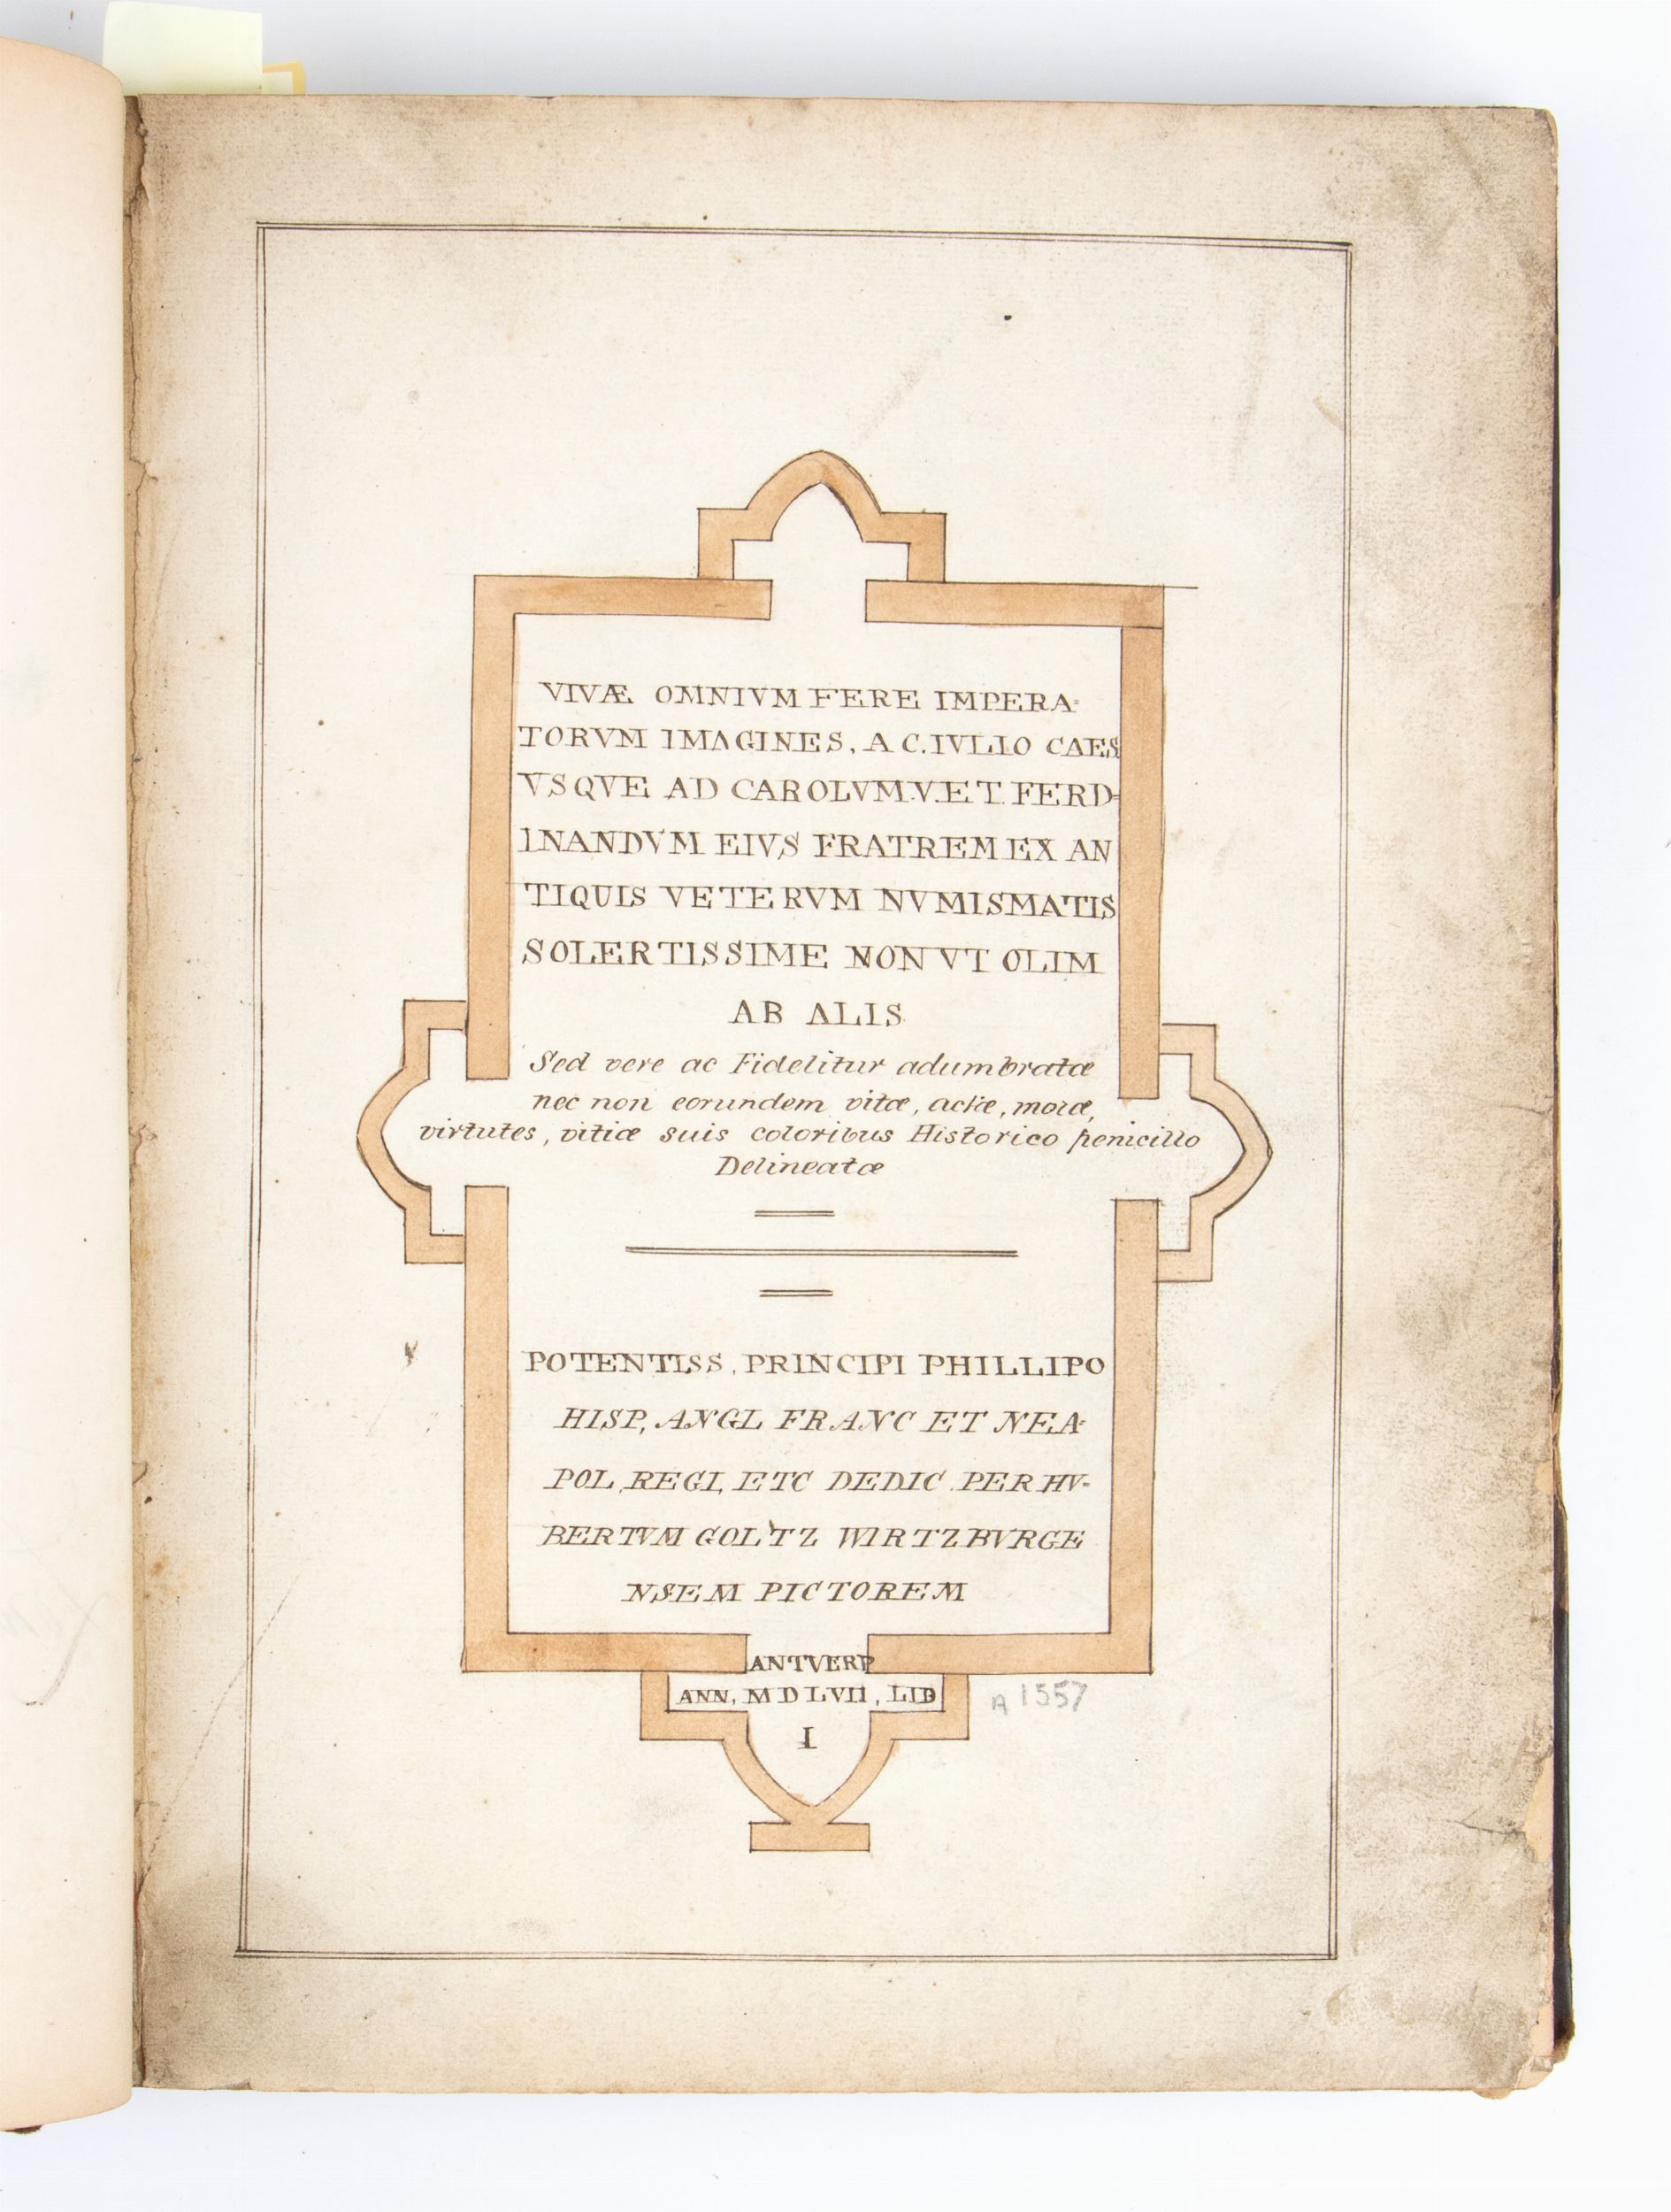 VIVÆ OMNIVM FERE IMPERA=
TORVM IMAGINES, A C. IVLIO CAES
VSQVE AD CAROLVM.V.ET FERD=
INANDVM EIVS FRATREM EX AN
TIQUIS VETERVM NVMISMATIS
SOLERTISSIME NON VT OLIM
AB ALIS
Sed vere ac Fidelitur adumbratæ
nec non eorundem vitæ, actæ, moræ,
virtutes, vitiæ suis coloribus Historico penicillo
Delineatæ
POTENTISS, PRINCIPI PHILLIPO
HISP, ANGL FRANC ET NEA=
POL, REGI, ETC DEDIC PER HV=
BERTVM GOLTZ WIRTZBVRGE
NSEM PICTOREM
ANTVERP
ANN, MDLVII, LIB
I
A 1557